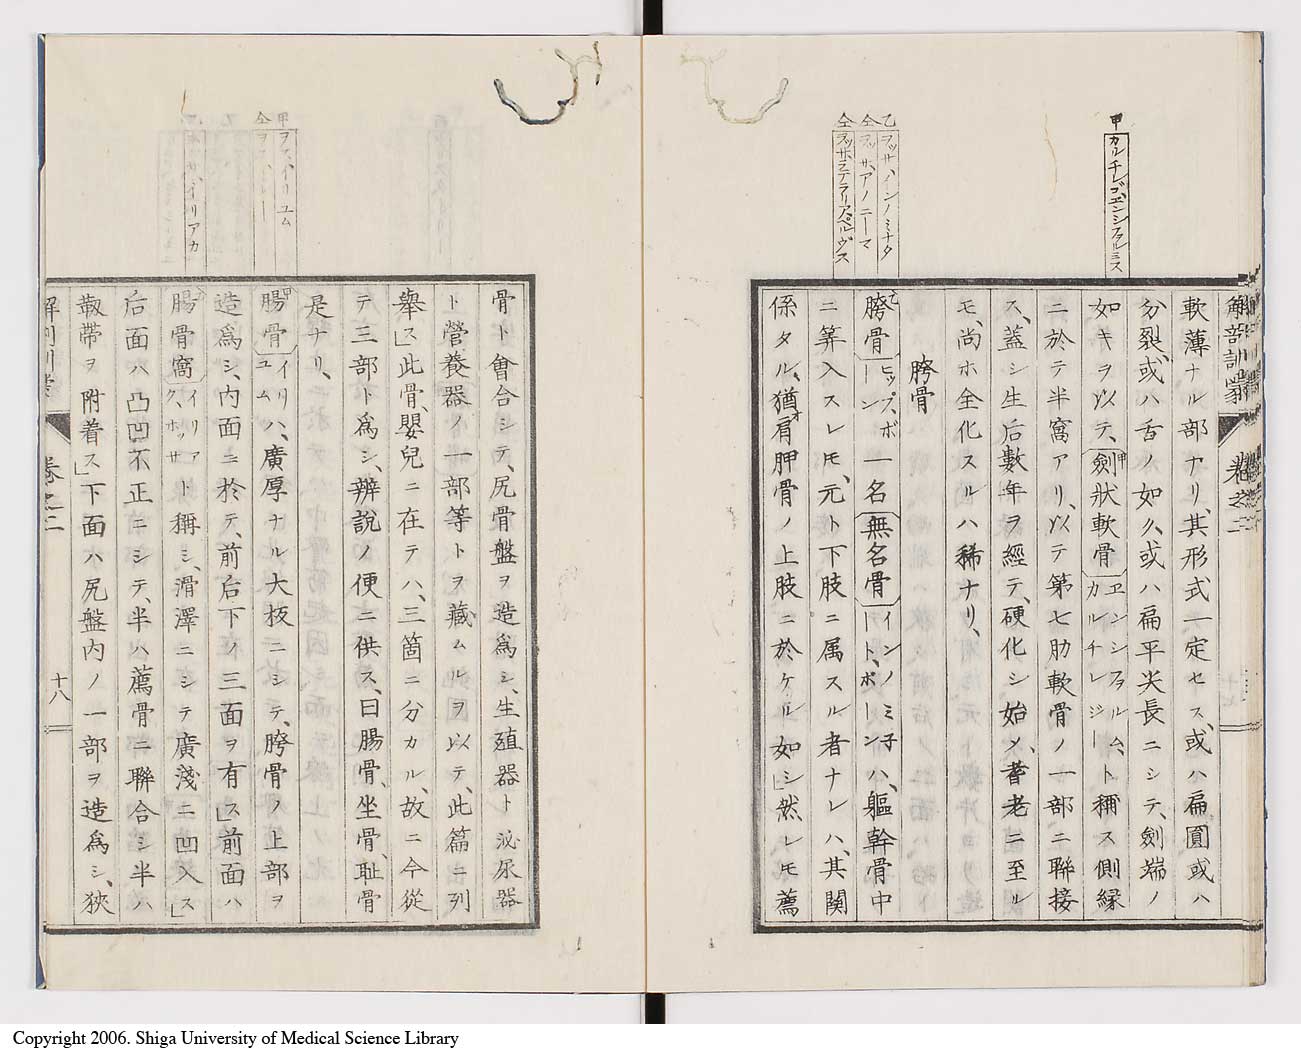 甲カルチレゴ、エンシファルミス
乙ヲッサ、インノミナタ
仝ヲッサ、アノニーマ
仝ヲッサ、ラテラリア、ペルヴス
解剖訓蒙 卷之二
軟薄ナル部ナリ、其形式一定セス、或ハ扁圓或ハ
分裂、或ハ舌ノ如ク、或ハ扁平尖長ニシテ、劍端ノ
如キヲ以テ、劍狀軟骨甲エンシファルム、カルチレジート稱ス側縁
ニ於テ半窩アリ、以テ第七肋軟骨ノ一部ニ聯接
ス、蓋シ生后數年ヲ經テ、硬化シ始メ、耆老ニ至ル
モ、尚ホ全化スルハ稀ナリ、
胯骨
胯骨乙ヒップ、ボーン一名無名骨インノミ子ート、ボーンハ、軀幹骨中
ニ算入スレ𪜈、元ト下肢ニ属スル者ナレハ、其関
係タル、猶オ肩胛骨ノ上肢ニ於ケル如シ」然レ𪜈薦
甲ヲス、イリユム
解剖訓蒙 卷之二 十八
骨ト會合シテ、尻骨盤ヲ造為シ、生殖器ト泌尿器
ト營養器ノ一部等トヲ藏ムルヲ以テ、此篇ニ列
舉ス」此骨、嬰兒ニ在テハ、三箇ニ分カル、故ニ今從
テ三部ト為シ、辨說ノ便ニ供ス、曰腸骨、坐骨、耻骨
是ナリ、
腸骨甲イリユムハ、廣厚ナル大板ニシテ、胯骨ノ上部ヲ
造為シ、内面ニ於テ、前后下ノ三面ヲ有ス」前面ハ
腸骨窩イリアク、ホッサト稱シ、滑澤ニシテ廣淺ニ凹入ス」
后面ハ凸凹不正ニシテ、半ハ薦骨ニ聯合シ半ハ
靱帶ヲ附着ス」下面ハ尻盤内ノ一部ヲ造為シ、狹
Copyright 2006. Shiga University of Medical Science Library